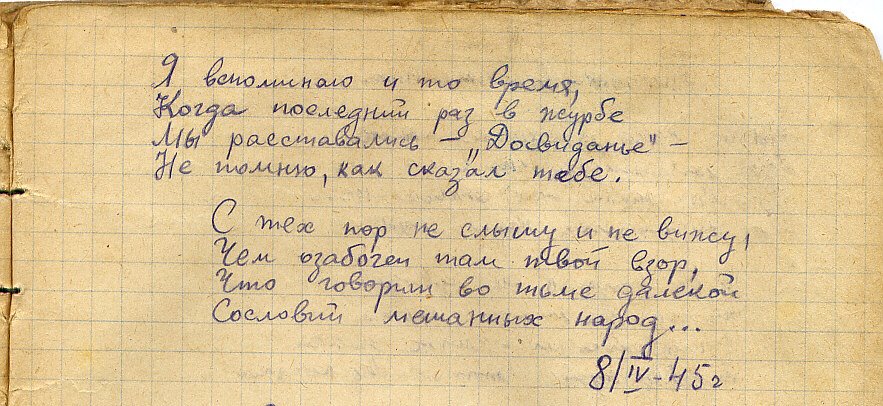 Я вспоминаю и то время,
Когда последний раз в журбе
Мы расставались – „Досвиданье" –
Не помню, как сказал тебе.
С тех пор не слышу и не вижу,
Чем озабочен там твой взор,
Что говорит во тьме далекой
Сословий мешанных народ...
8/IV-45г